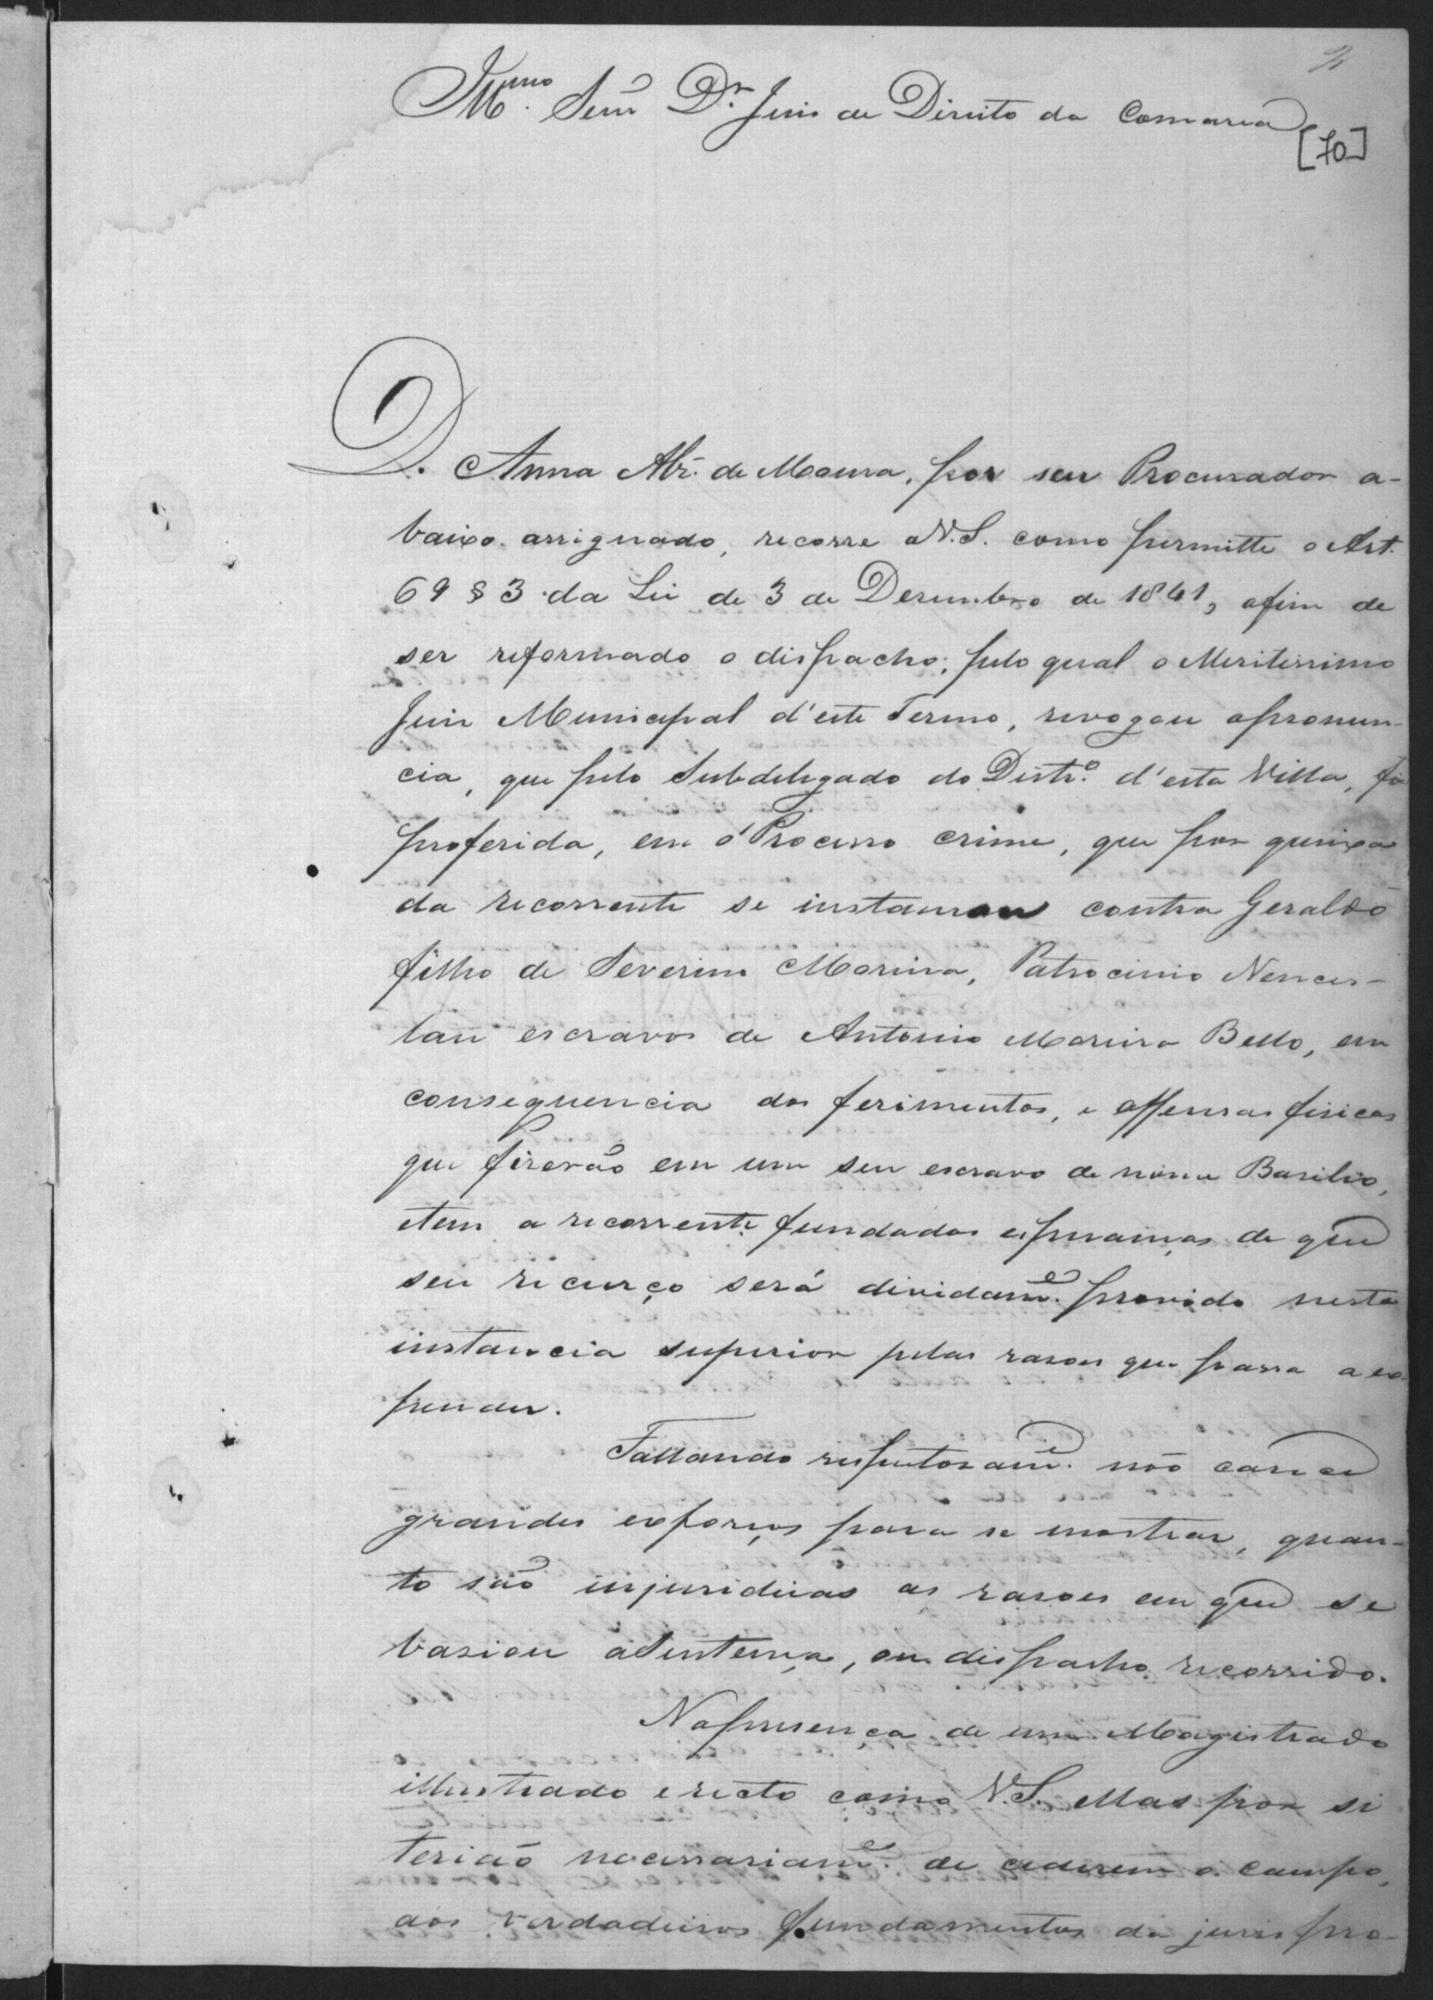 2
Illmo. Senr. Dr. Juis de Direito da Comarca
[70]
D. Anna Alz. de Moura, por seu Procurador a-
baixo assignado, recorre a V.S. como permitte o Art.
69 § 3 da Lei de 3 de Desembro de 1841, afim de
ser reformado o despacho, pelo qual o Meritissimo
Juis Municipal d'este Termo, revogou apronun-
cia, que pelo Subdelegado do Destro. d'esta Villa, foi
proferida, em o Processo crime, que por queixa
da recorrente se instaurou contra Geraldo
filho de Severino Moreira, Patrocinio Vences-
lau escravos de Antonio Moreira Bello, em
consequencia dos ferimentos, e offensas fisicas
que fiserão em um seu escravo de nome Basilio,
etem a recorrente fundadas esperanças de que
seu recurço será devidame. provido nesta
instancia superior pelas rasoes que passa a ex
pender.
Fallando respeitosame. não carece
grandes exforços para se mostrar, quan-
to são injuridicas as rasoes em que se
basiou aSentença, ou despacho recorrido.
Napresença de um Magistrado
illustrado e recto como V.S. ellas por si
terião necessariame. de cederem o campo,
aos verdadeiros fundamentos da jurispro-